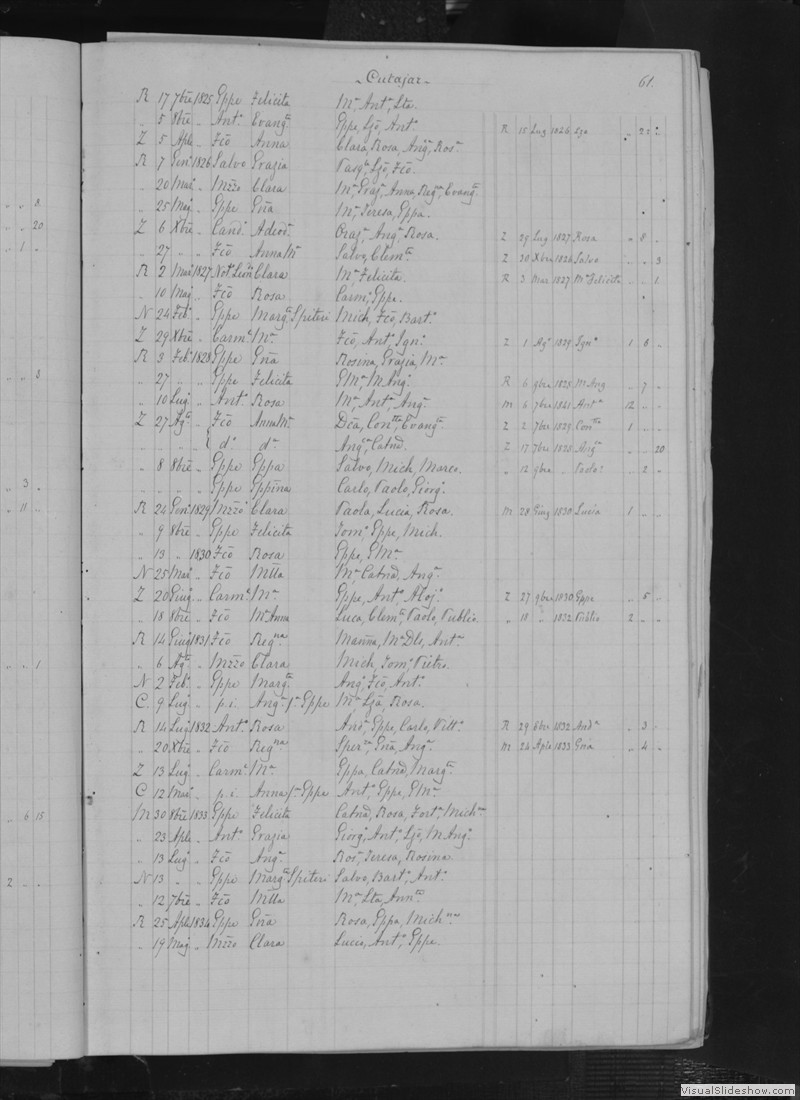 Cutajar 61.
R 17 7bre 1825 Gppe Felicita Mª, Antª, Lta.
" 5 8bre " Antº Evangª Gppe, Ljō, Antº R 15 Lug 1826 Ljo " 22 "
Z 5 Aple " Fcō Anna Clara, Rosa, Angª, Rosª
R 7 Genº 1826 Salvº Grazia Pasqª, Ljō, Fcō.
" 20 Marº " Mzzo Clara Mª, Grazª, Anna, Regª, Evangª
" 25 Magº " Gppe Gña Mª, Teresa, Gppa.
Z 6 Xbre " Candº Adeodª Orazº, Angª, Rosa. Z 29 Lug 1827 Rosa " 8 "
" 27 " " Fcō Anna Mª Salvº, Clemte Z 30 Xbre 1826 Salvo " " 3
R 2 Marº 1827 Notº Luigi Clara Mª Felicita. R 3 Mar 1827 Mª Felicita " " 1
" 10 Magº " Fcō Rosa Carmº, Gppe.
N 24 Febº " Gppe Margª Spiteri Mich, Fcō, Bartº
Z 29 Xbre " Carmº Mª Fcō, Antº, Ignº Z 1 Agº 1829 Ignº 1 6 "
R 3 Febº 1828 Gppe Gña Rosina, Grazia, Mª
" 27 " " Gppe Felicita GMª, M Angº R 6 9bre 1828 M Ang " 7 "
" 10 Lugº " Antº Rosa Mª, Antª, Angª M 6 7bre 1841 Antª 12 " "
Z 27 Agº " Fcō Anna Mª Dca, Conttа, Evangta Z 2 7bre 1829 Contta 1 " "
" " " " dº dº Angª, Catnd. Z 17 7bre 1828 Angª " " 20
" 8 8bre " Gppe Gppa Salvº, Mich, Marco. " 12 9bre " Paolo " 2 "
" " " " Gppe Gppina Carlo, Paolo, Giorgº
R 24 Genº 1829 Mzzo Clara Paola, Lucia, Rosa. M 28 Giug 1830 Lucia 1 " "
" 9 8bre " Gppe Felicita Tomº, Gppe, Mich.
" 13 " 1830 Fcō Rosa Gppe, GMª
N 25 Marº " Fcō Mtta Mª, Catnd, Angª
Z 20 Giugº " Carmº Mª Gppe, Antº, Alojº Z 27 9bre 1830 Gppe " 5 "
" 18 8bre " Fcō Mª Anna Luca, Clemte, Paolo, Publio " 18 " 1832 Publio 2 " "
R 14 Giugº 1831 Fcō Regna Marina, Mª Dls, Antª
" 6 Agº " Mzzo Clara Mich, Tomº, Pietro.
N 2 Febº " Gppe Margta Angº, Fcō, Antº
C. 9 Lugº " p.i. Angª fª Gppe Mª, Ljā, Rosa.
R 14 Lugº 1832 Antº Rosa Andª, Gppe, Carlo, Vittª R 29 6bre 1832 Andª " 3 "
" 20 Xbre " Fcō Regna Sperza, Gña, Angª M 24 Aple 1833 Gña " 4 "
Z 13 Lugº " Carmº Mª Gppa, Catnd, Margta
C 12 Marº " p.i. Anna fª Gppe Antª, Gppe, GMª
M 30 8bre 1833 Gppe Felicita Catnd, Rosa, Fortª, Michna
" 23 Aple " Antº Grazia Giorgº, Antº, Ljō, M Angº
" 13 Lugº " Fcō Angª Rosª, Teresa, Rosina.
N 13 " " Gppe Margta Spiteri Salvº, Bartº, Antº
" 12 7bre " Fcō Mtta Mª, Lta, Annta
R 25 Aple 1834 Gppe Gña Rosa, Gppa, Michna
" 19 Magº " Mzzo Clara Lucia, Antº, Gppe.
" " 8
" " 20
" 1 "
" " 3
" 3 "
" 11 "
" " 1
" 6 15
2 " "
VisualSlideshow.com